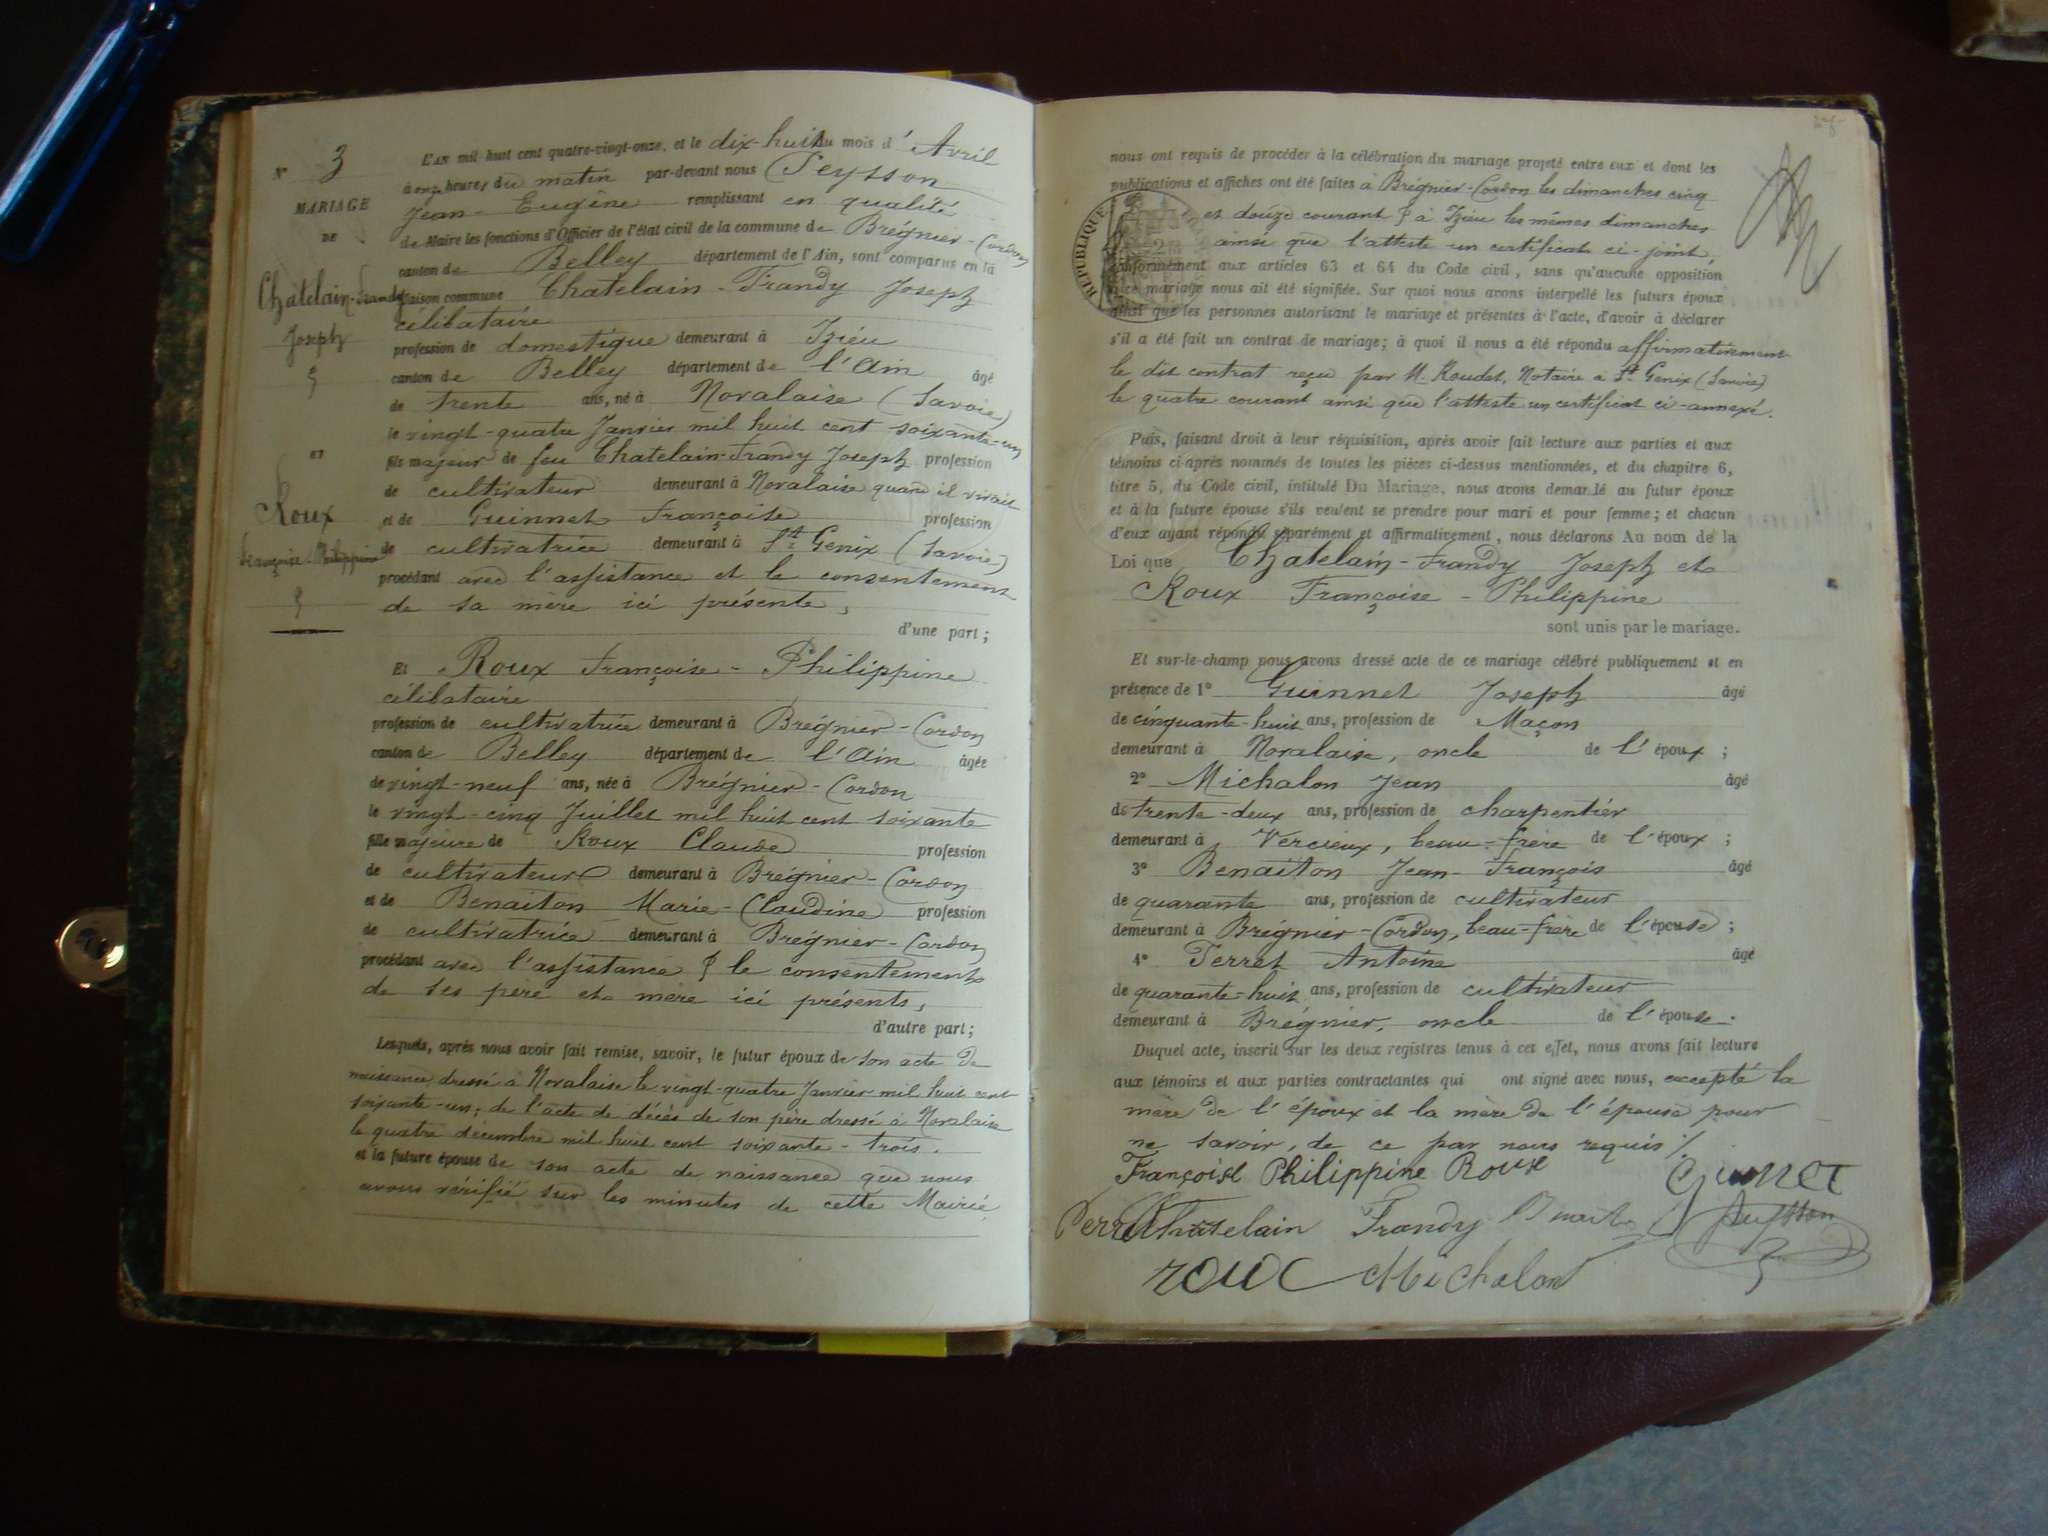 N° 3
MARIAGE
DE
Châtelain-Frandy
Joseph
ET
Roux
Françoise-Philippine
L'AN mil huit cent quatre-vingt-onze, et le dix-huit du mois d'Avril
à onze heures du matin par-devant nous Peysson
Jean-Eugène remplissant en qualité
de Maire les fonctions d'Officier de l'état civil de la commune de Brégnier-Cordon
canton de Belley département de l'Ain, sont comparus en la
maison commune Chatelain-Frandy Joseph
célibataire
profession de domestique demeurant à Izieu
canton de Belley département de l'Ain âgé
de trente ans, né à Novalaise (Savoie)
le vingt-quatre Janvier mil huit cent soixante-un
fils majeur de feu Chatelain-Frandy Joseph profession
de cultivateur demeurant à Novalaise quand il vivait
et de Guinnet Françoise profession
de cultivatrice demeurant à St Genix (Savoie)
procédant avec l'assistance et le consentement
de sa mère ici présente,
d'une part;
Et Roux Françoise-Philippine
célibataire
profession de cultivatrice demeurant à Brégnier-Cordon
canton de Belley département de l'Ain âgée
de vingt-neuf ans, née à Brégnier-Cordon
le vingt-cinq Juillet mil huit cent soixante
fille majeure de Roux Claude profession
de cultivateur demeurant à Brégnier-Cordon
et de Benaiton Marie-Claudine profession
de cultivatrice demeurant à Brégnier-Cordon
procédant avec l'assistance & le consentement
de ses père et mère ici présents,
d'autre part;
Lesquels, après nous avoir fait remise, savoir, le futur époux de son acte de
naissance dressé à Novalaise le vingt-quatre Janvier mil huit cent
soixante-un; de l'acte de décès de son père dressé à Novalaise
le quatre décembre mil huit cent soixante-trois.
et la future épouse de son acte de naissance que nous
avons vérifié sur les minutes de cette Mairie
nous ont requis de procéder à la célébration du mariage projeté entre eux et dont les
publications et affiches ont été faites à Brégnier-Cordon les dimanches cinq
et douze courant & à Izieu les mêmes dimanches
ainsi que l'atteste un certificat ci-joint,
conformément aux articles 63 et 64 du Code civil, sans qu'aucune opposition
à ce mariage nous ait été signifiée. Sur quoi nous avons interpellé les futurs époux
ainsi que les personnes autorisant le mariage et présentes à l'acte, d'avoir à déclarer
s'il a été fait un contrat de mariage; à quoi il nous a été répondu affirmativement
le dit contrat reçu par M. Roudet, Notaire à St Genix (Savoie)
le quatre courant ainsi que l'atteste un certificat ci-annexé.
RÉPUBLIQUE
Puis, faisant droit à leur réquisition, après avoir fait lecture aux parties et aux
témoins ci-après nommés de toutes les pièces ci-dessus mentionnées, et du chapitre 6,
titre 5, du Code civil, intitulé Du Mariage, nous avons demandé au futur époux
et à la future épouse s'ils veulent se prendre pour mari et pour femme; et chacun
d'eux ayant répondu séparément et affirmativement, nous déclarons Au nom de la
Loi que Chatelain-Frandy Joseph et
Roux Françoise-Philippine
sont unis par le mariage.
Et sur-le-champ nous avons dressé acte de ce mariage célébré publiquement et en
présence de 1° Guinnet Joseph âgé
de cinquante-huit ans, profession de Maçon
demeurant à Novalaise, oncle de l'époux;
2° Michalon Jean âgé
de trente-deux ans, profession de charpentier
demeurant à Vercieux, beau-frère de l'époux;
3° Benaiton Jean-François âgé
de quarante ans, profession de cultivateur
demeurant à Brégnier-Cordon, beau-frère de l'épouse;
4° Perret Antoine âgé
de quarante-huit ans, profession de cultivateur
demeurant à Brégnier, oncle de l'épouse.
Duquel acte, inscrit sur les deux registres tenus à cet effet, nous avons fait lecture
aux témoins et aux parties contractantes qui ont signé avec nous, excepté la
mère de l'époux et la mère de l'épouse pour
ne savoir, de ce par nous requis ./.
Françoise Philippine Roux Guinet
Perret Chatelain Frandy Peysson
roux Michalon